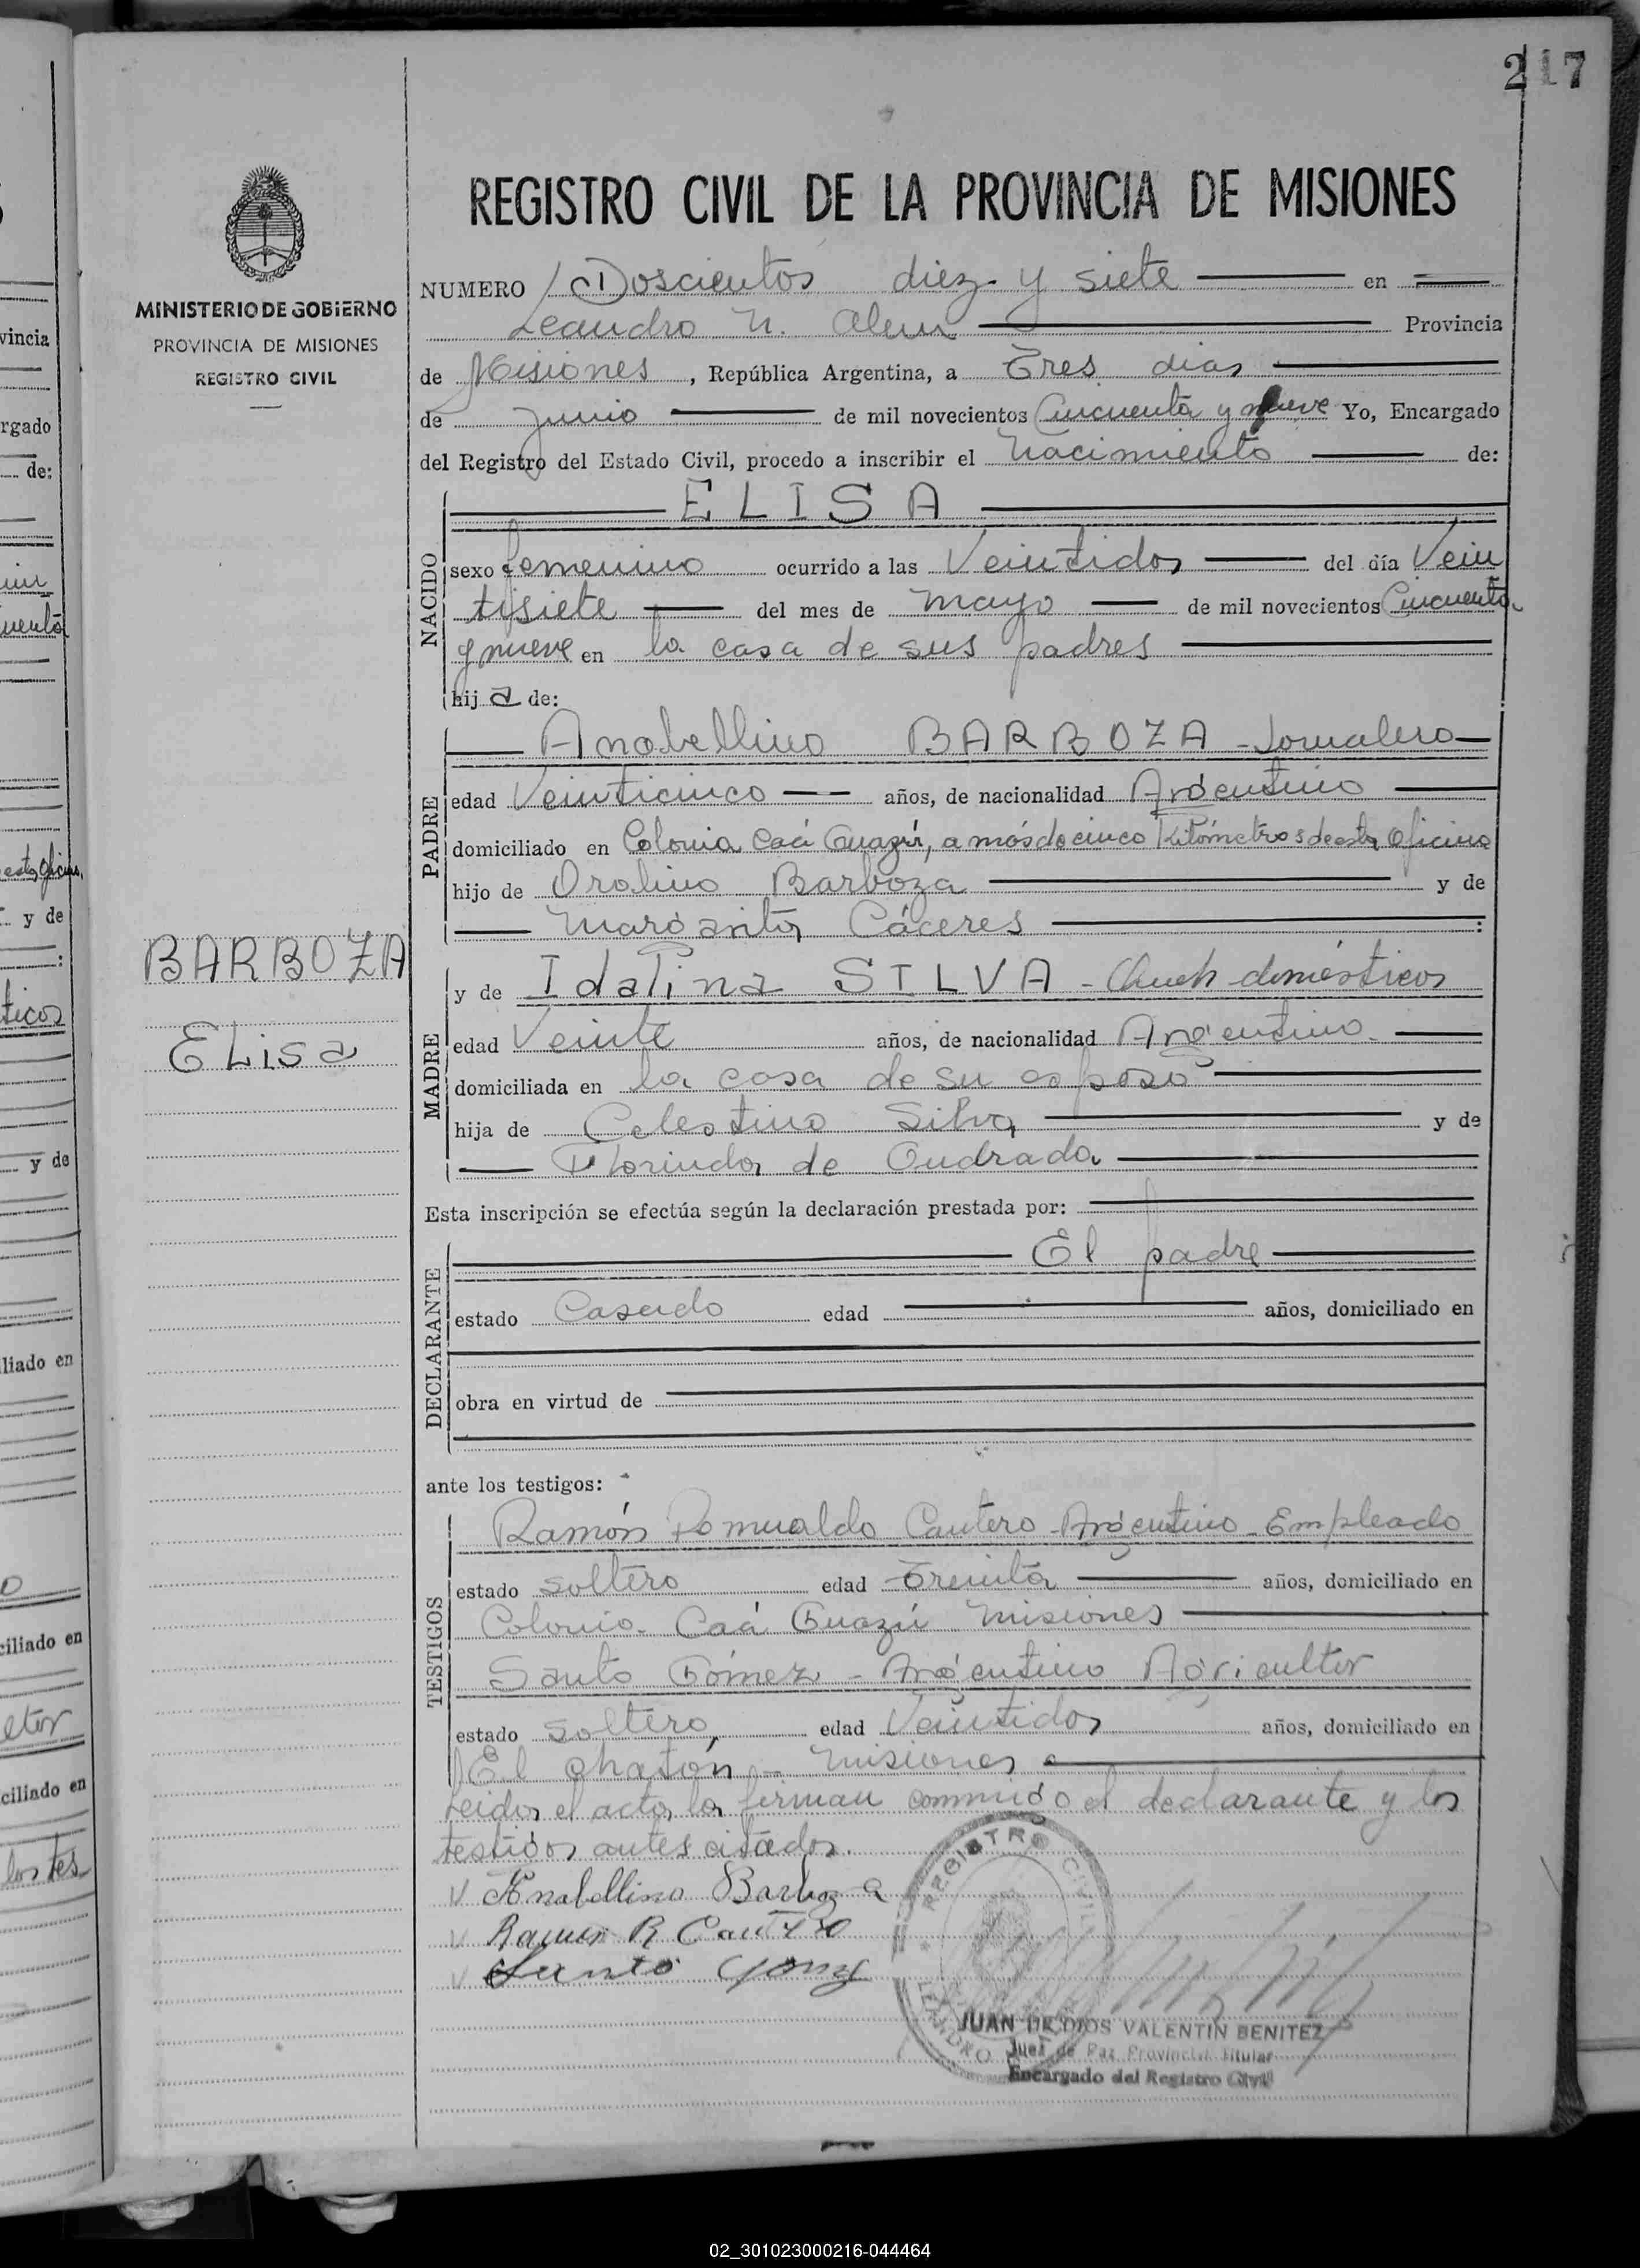 217
REGISTRO CIVIL DE LA PROVINCIA DE MISIONES
MINISTERIO DE GOBIERNO
PROVINCIA DE MISIONES
REGISTRO CIVIL
NUMERO Doscientos diez y siete en
Leandro N. Alem Provincia
de Misiones, República Argentina, a Tres dias
de Junio de mil novecientos Cincuenta y nueve Yo, Encargado
del Registro del Estado Civil, procedo a inscribir el Nacimiento de:
NACIDO
ELISA
sexo femenino ocurrido a las Veintidos del día Vein
tisiete del mes de mayo de mil novecientos Cincuenta
y nueve en la casa de sus padres
hij a de:
PADRE
Anabellino BARBOZA - Jornalero
edad Veinticinco años, de nacionalidad Argentino
domiciliado en Colonia Caá Guazú, a más de cinco Kilómetros de esta Oficina
hijo de Orolino Barboza y de
Margarita Cáceres :
BARBOZA
Elisa
MADRE
y de Idalina SILVA - Queh domésticos
edad Veinte años, de nacionalidad Argentino.
domiciliada en la casa de su esposo
hija de Celestino Silva y de
Florinda de Andrada
Esta inscripción se efectúa según la declaración prestada por:
DECLARANTE
El padre
estado Casado edad años, domiciliado en
obra en virtud de
ante los testigos:
TESTIGOS
Ramón Romualdo Cantero - Argentino - Empleado
estado soltero edad Treinta años, domiciliado en
Colonia Caá Guazú Misiones
Santo Gómez - Argentino Agricultor
estado soltero, edad Veintidos años, domiciliado en
El chatón - Misiones
Leida el acta, la firman conmigo el declarante y los
testigos antes citados.
Anabellino Barboza
Ramon R Cantero
Santo Gomez
REGISTRO CIVIL
LEANDRO
JUAN DE DIOS VALENTIN BENITEZ
Juez de Paz Provincial Titular
Encargado del Registro Civil
vincia
rgado
de:
cuenta
y de
:
ticos
y de
liado en
ciliado en
ltor
ciliado en
los tes
02_301023000216-044464